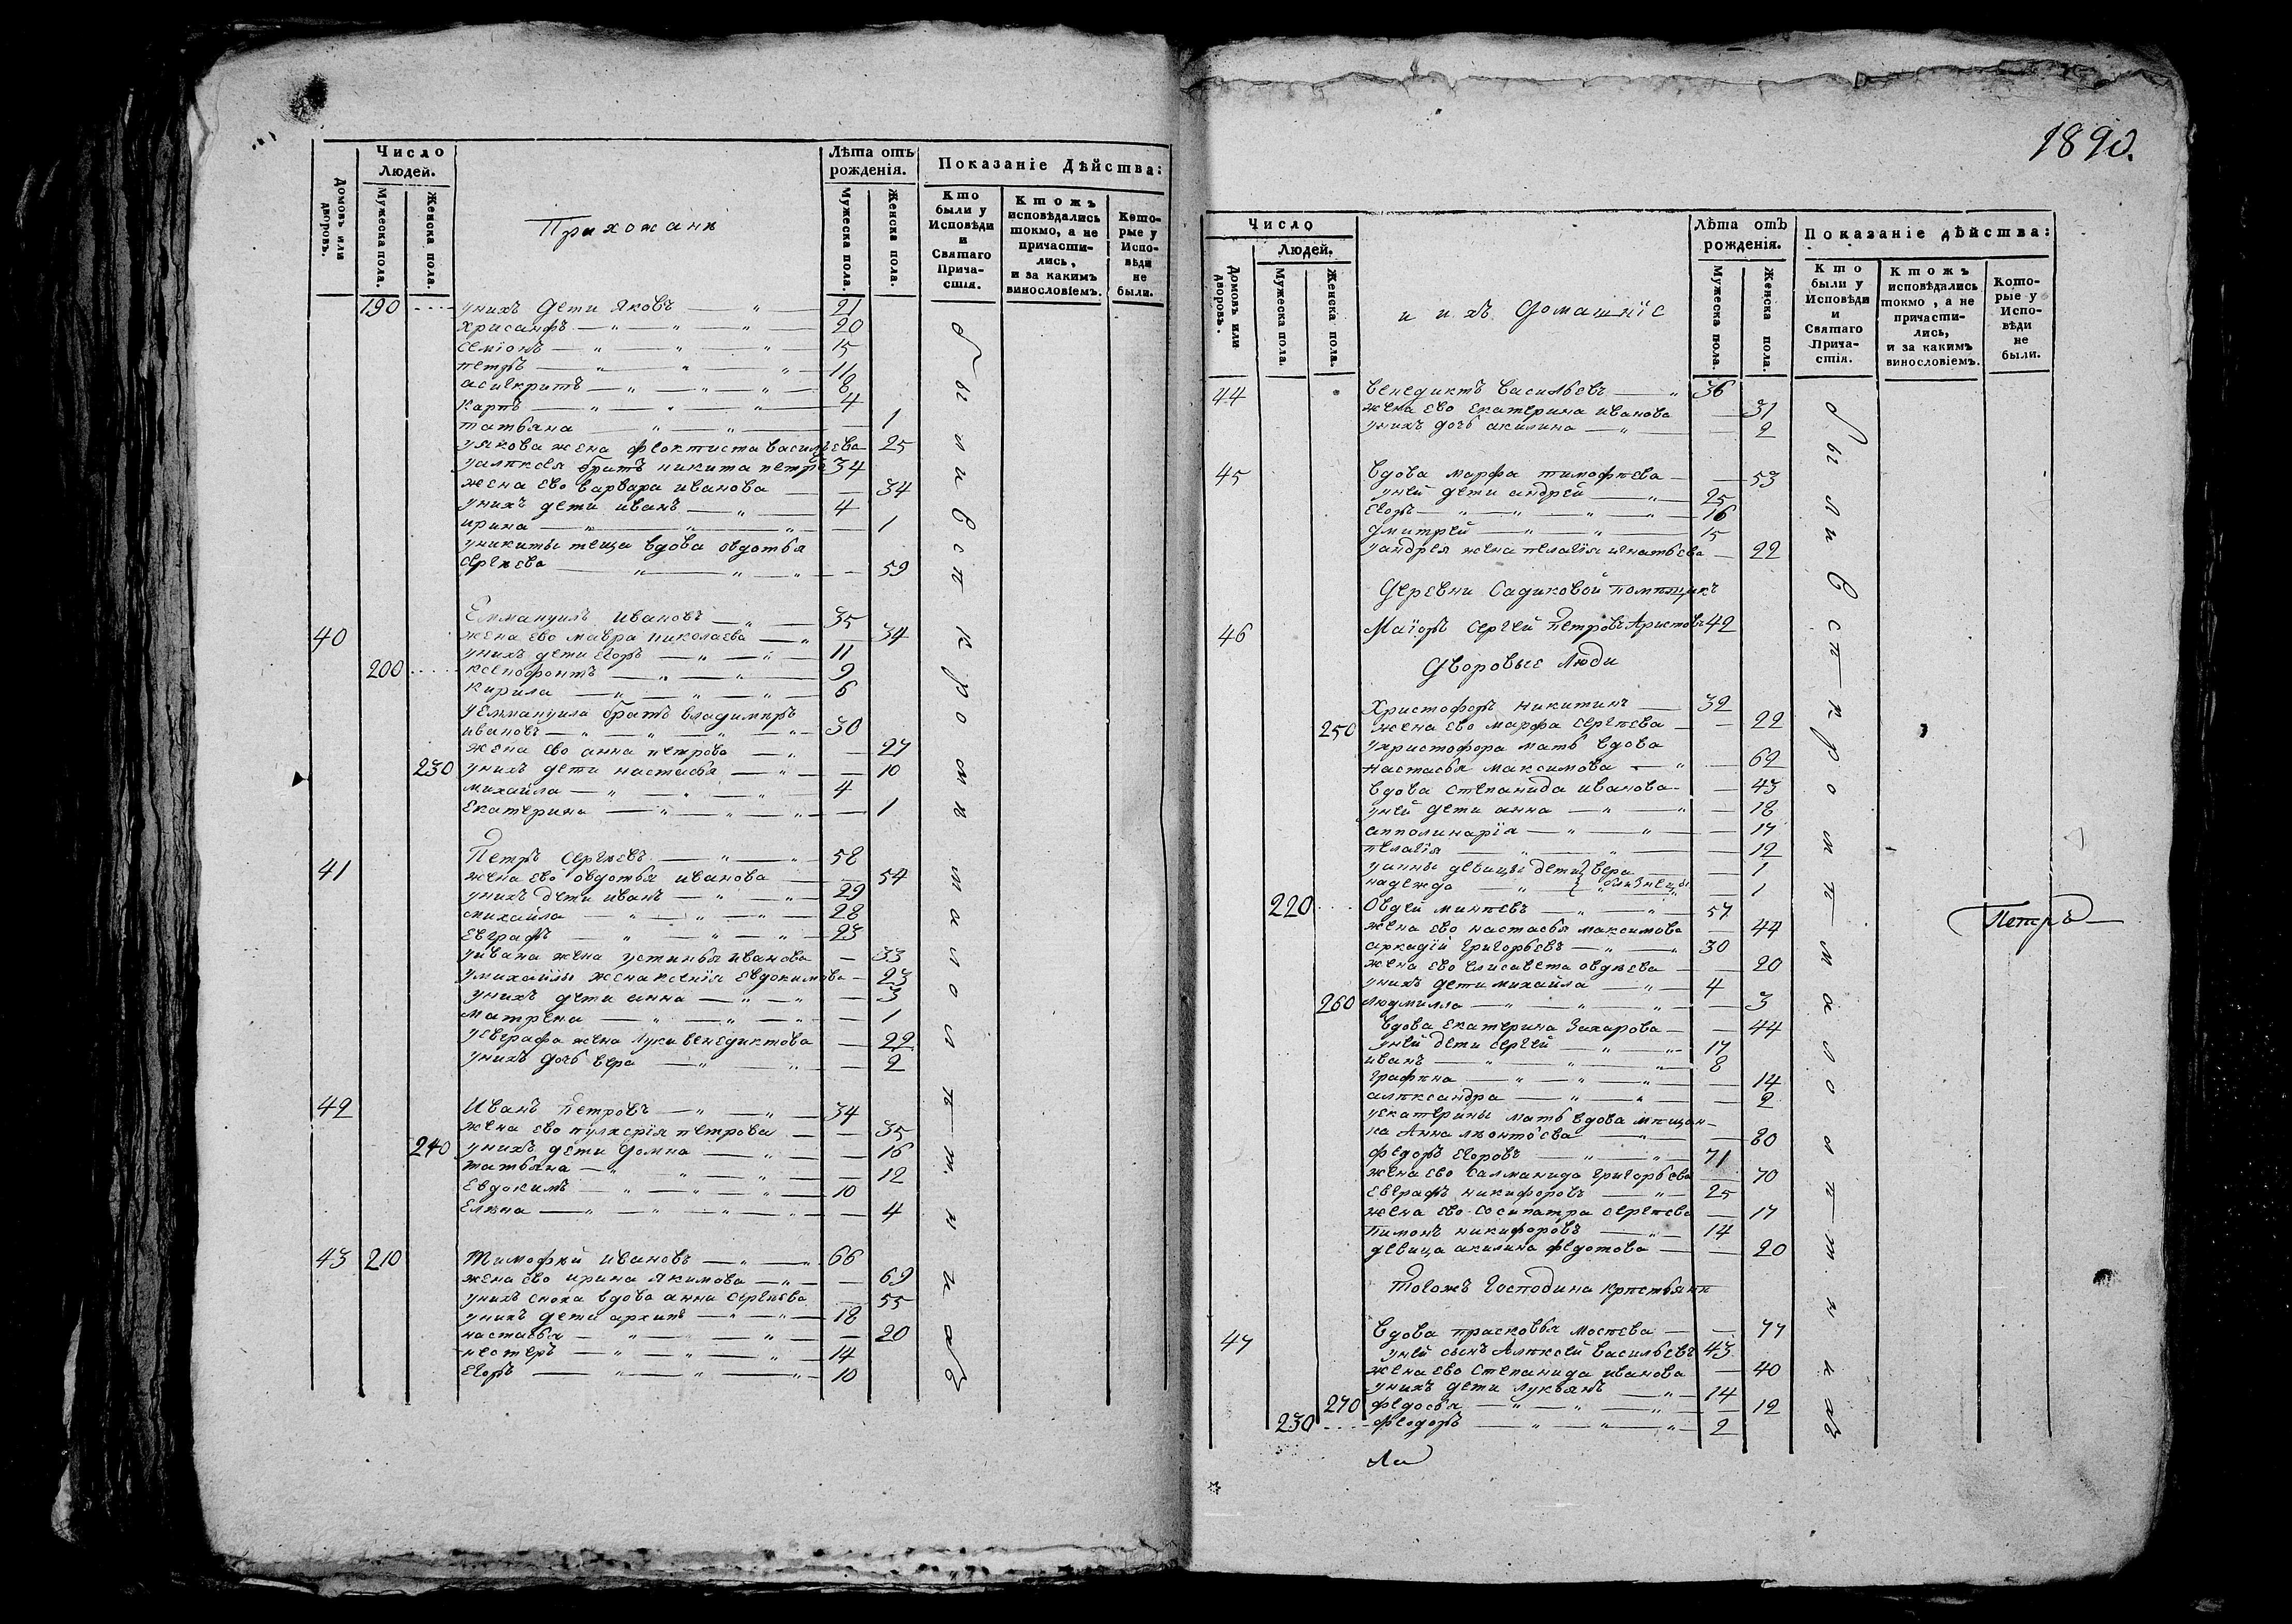 Число Людей.
Лѣта отъ рожденія.
Показаніе Дѣйства:
Домовъ или дворовъ.
Мужеска пола.
Женска пола.
Прихожанѣ
Мужеска пола.
Женска пола.
Кто были у Исповѣди и Святаго Прича-стія.
Ктожъ исповѣдались токмо, а не причасти-лись, и за какимъ винословіемъ.
Кото-рые у Испо-вѣди не были.
190 унихъ дети Яковъ 21
хрисанфъ 20
семіонъ 15
петръ 11
асигкритъ 8
карпъ 4
татьяна 1
уякова жена феоктиста васильева 25
уалѣксѣя братъ никита петръ 34
жена ево варвара иванова 34
унихъ дети иванъ 4
ирина 1
уникиты теща вдова овдотья
сергѣева 59
40 Еммануилъ ивановъ 35
жена ево мавра николаева 34
унихъ дети егоръ 11
200 ксенофонтъ 9
кирила 6
уеммануила братъ владимиръ
ивановъ 30
жена ево анна петрова 27
230 унихъ дети настасья 10
михайла 4
екатерина 1
41 Петръ сергѣевъ 58
жена ево овдотья иванова 54
унихъ дети иванъ 29
михайла 28
евграфъ 23
уивана жена устинья иванова 33
умихайлы жена ксенія евдокимова 23
унихъ дети анна 3
матрена 1
уевграфа жена лукивенедиктова 22
унихъ дочь вера 2
42 Иванъ петровъ 34
жена ево пулхерія петрова 35
240 унихъ дети домна 16
татьяна 12
евдокимъ 10
елѣна 4
43 210 Тимофѣй ивановъ 66
жена ево ирина якимова 69
унихъ сноха вдова анна сергѣева 55
унихъ дети архипъ 18
настасья 20
нестеръ 14
егоръ 10
были в с п к р о м п м а л о л п т н и хъ
1890.
Число
Людей.
Лѣта отъ рожденія.
Показаніе дѣйства:
Домовъ или дворовъ.
Мужеска пола.
Женска пола.
и ихъ домашніе
Мужеска пола.
Женска пола.
Кто были у Исповѣди и Святаго Прича-стія.
Ктожъ исповѣдались токмо, а не причасти-лись, и за какимъ винословіемъ.
Кото-рые у Испо-вѣди не были.
44 венедиктъ васильевъ 36
жена ево екатерина иванова 31
унихъ дочь акилина 2
45 вдова марфа тимофѣева 53
уней дети андрей 25
егоръ 16
дмитрей 15
уандрея жена пелагія игнатьева 22
деревни Садиковой помѣщикъ
46 Маіоръ сергей петровъ Аристовъ 42
дворовые люди
Христофоръ никитинъ 32
250 жена ево марфа сергѣева 22
ухристофора мать вдова
настасья максимова 62
вдова степанида иванова 43
уней дети анна 18
апполинарія 17
пелагія 12
уанны девицы дети вера 1
надежда близнецы 1
220 Овдей минѣевъ 57
жена ево настасья максимова 44
аркадій григорьевъ 30
жена ево елисавета овдѣева 20
унихъ дети михайла 4
260 людмилла 3
вдова екатерина захарова 44
уней дети сергей 17
иванъ 8
графѣна 14
алѣксандра 2
уекатерины мать вдова мѣщан-
ка Анна лѣонтьева 80
федоръ егоровъ 71
жена ево салманида григорьева 70
евграфъ никифоровъ 25
жена ево сосипатра сергѣева 17
пимонъ никифоровъ 14
девица акилина федотова 20
тогожъ господина крѣстьянѣ
47 вдова прасковья мосѣева 77
уней сынъ Алѣксей васильевъ 43
жена ево степанида иванова 40
унихъ дети лукьянъ 14
270 федосья 12
230 феодоръ 2
были в с п к р о м п м а л о л п т н и хъ
Петръ
Ла